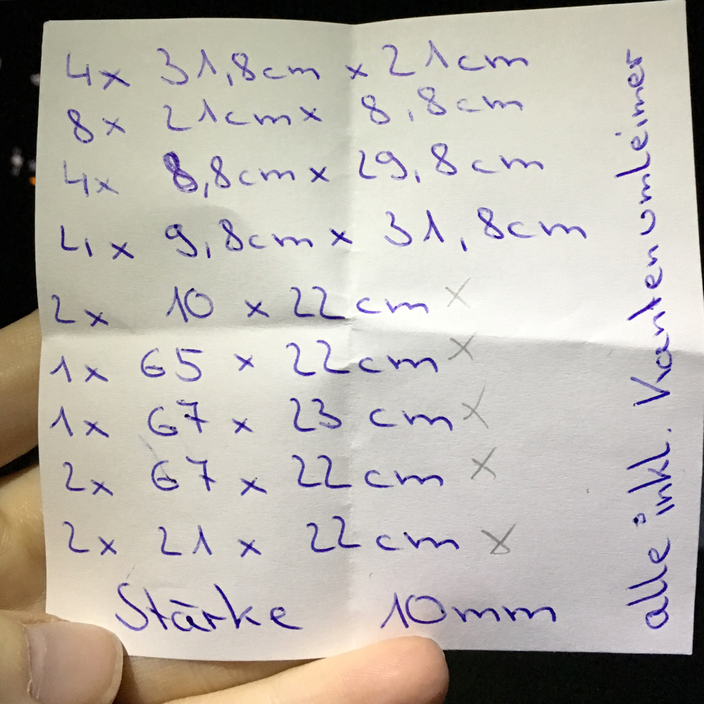 4x 31,8cm x 21cm
8x 21cm x 8,8cm
4x 8,8cm x 29,8cm
4x 9,8cm x 31,8cm
2x 10 x 22cm x
1x 65 x 22cm x
1x 67 x 23 cm x
2x 67 x 22cm x
2x 21 x 22cm x
Stärke 10mm
alle inkl. Kantenumleimer